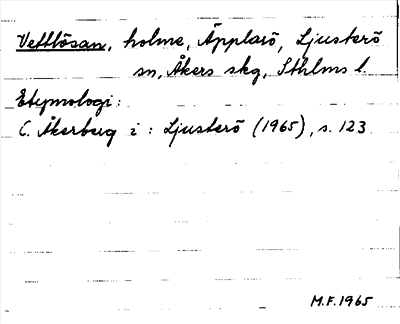 Vettlösan, holme, Äpplarö, Ljusterö
sn, Åkers skg, Sthlms l.
Etymologi:
C. Åkerberg i: Ljusterö (1965), s. 123.
M.F. 1965